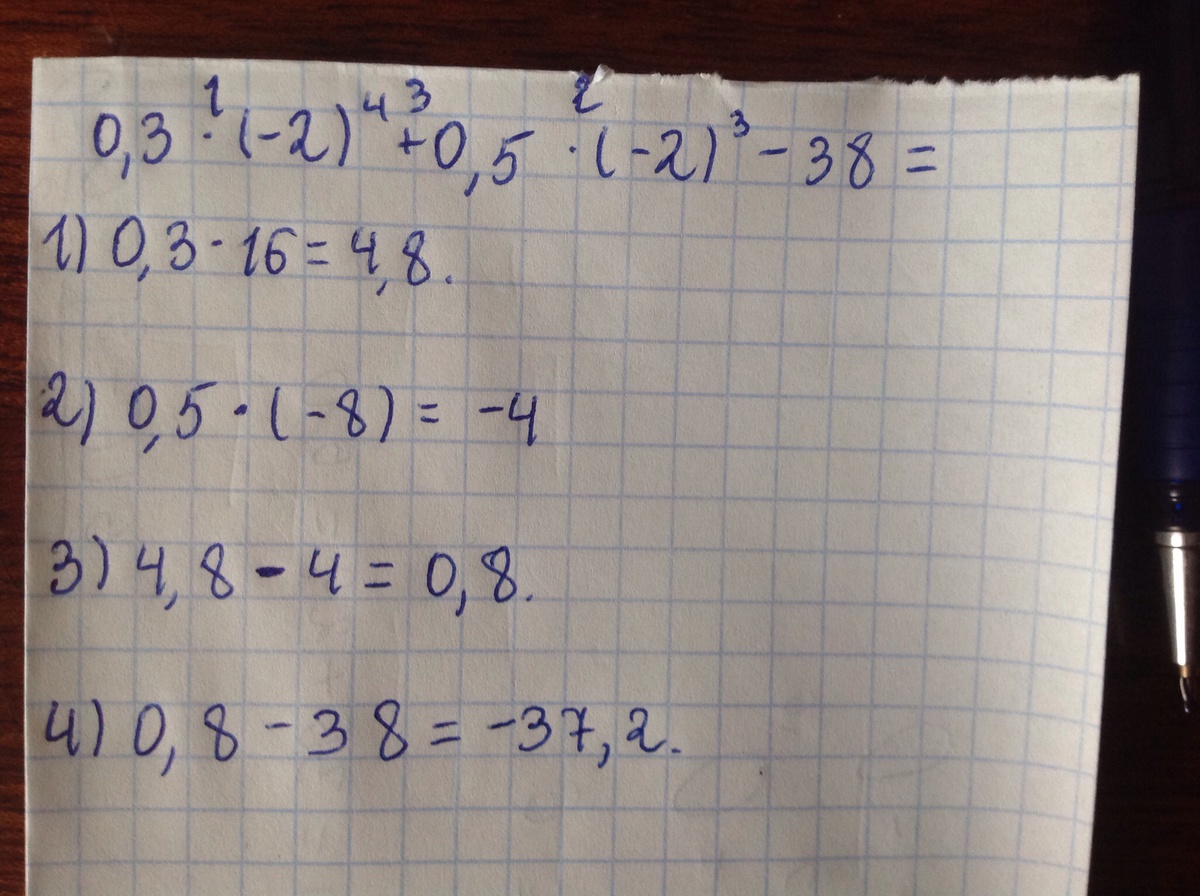 0,3 ¹· (-2)⁴ ³+ 0,5 ²· (-2)³ - 38 =
1) 0,3 · 16 = 4,8.
2) 0,5 · (-8) = -4
3) 4,8 - 4 = 0,8.
4) 0,8 - 38 = -37,2.